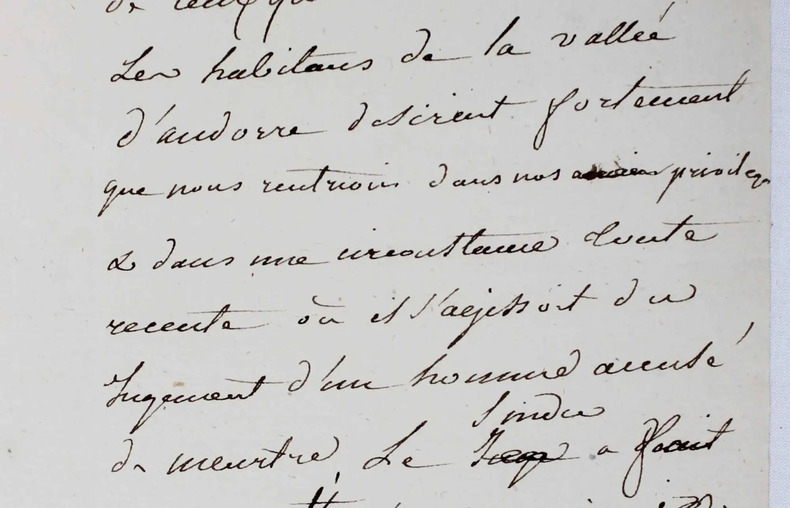 de ceux qui
Les habitans de la vallée
d'andorre desirent fortement
que nous rentrions dans nos privileges
& dans une circonstance toute
recente où il s'agissoit du
Jugement d'un homme accusé
Sindic
de meurtre, Le a fait